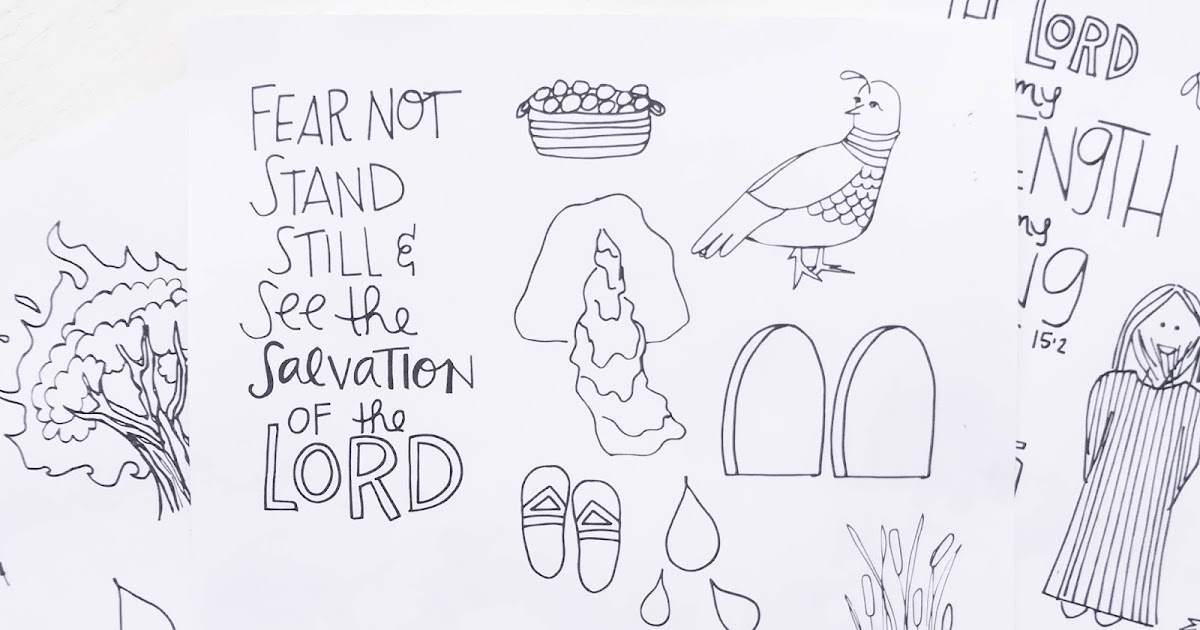 FEAR NOT
STAND
STILL &
See the
SALVATION
OF the
LORD
LORD
my
my
15:2